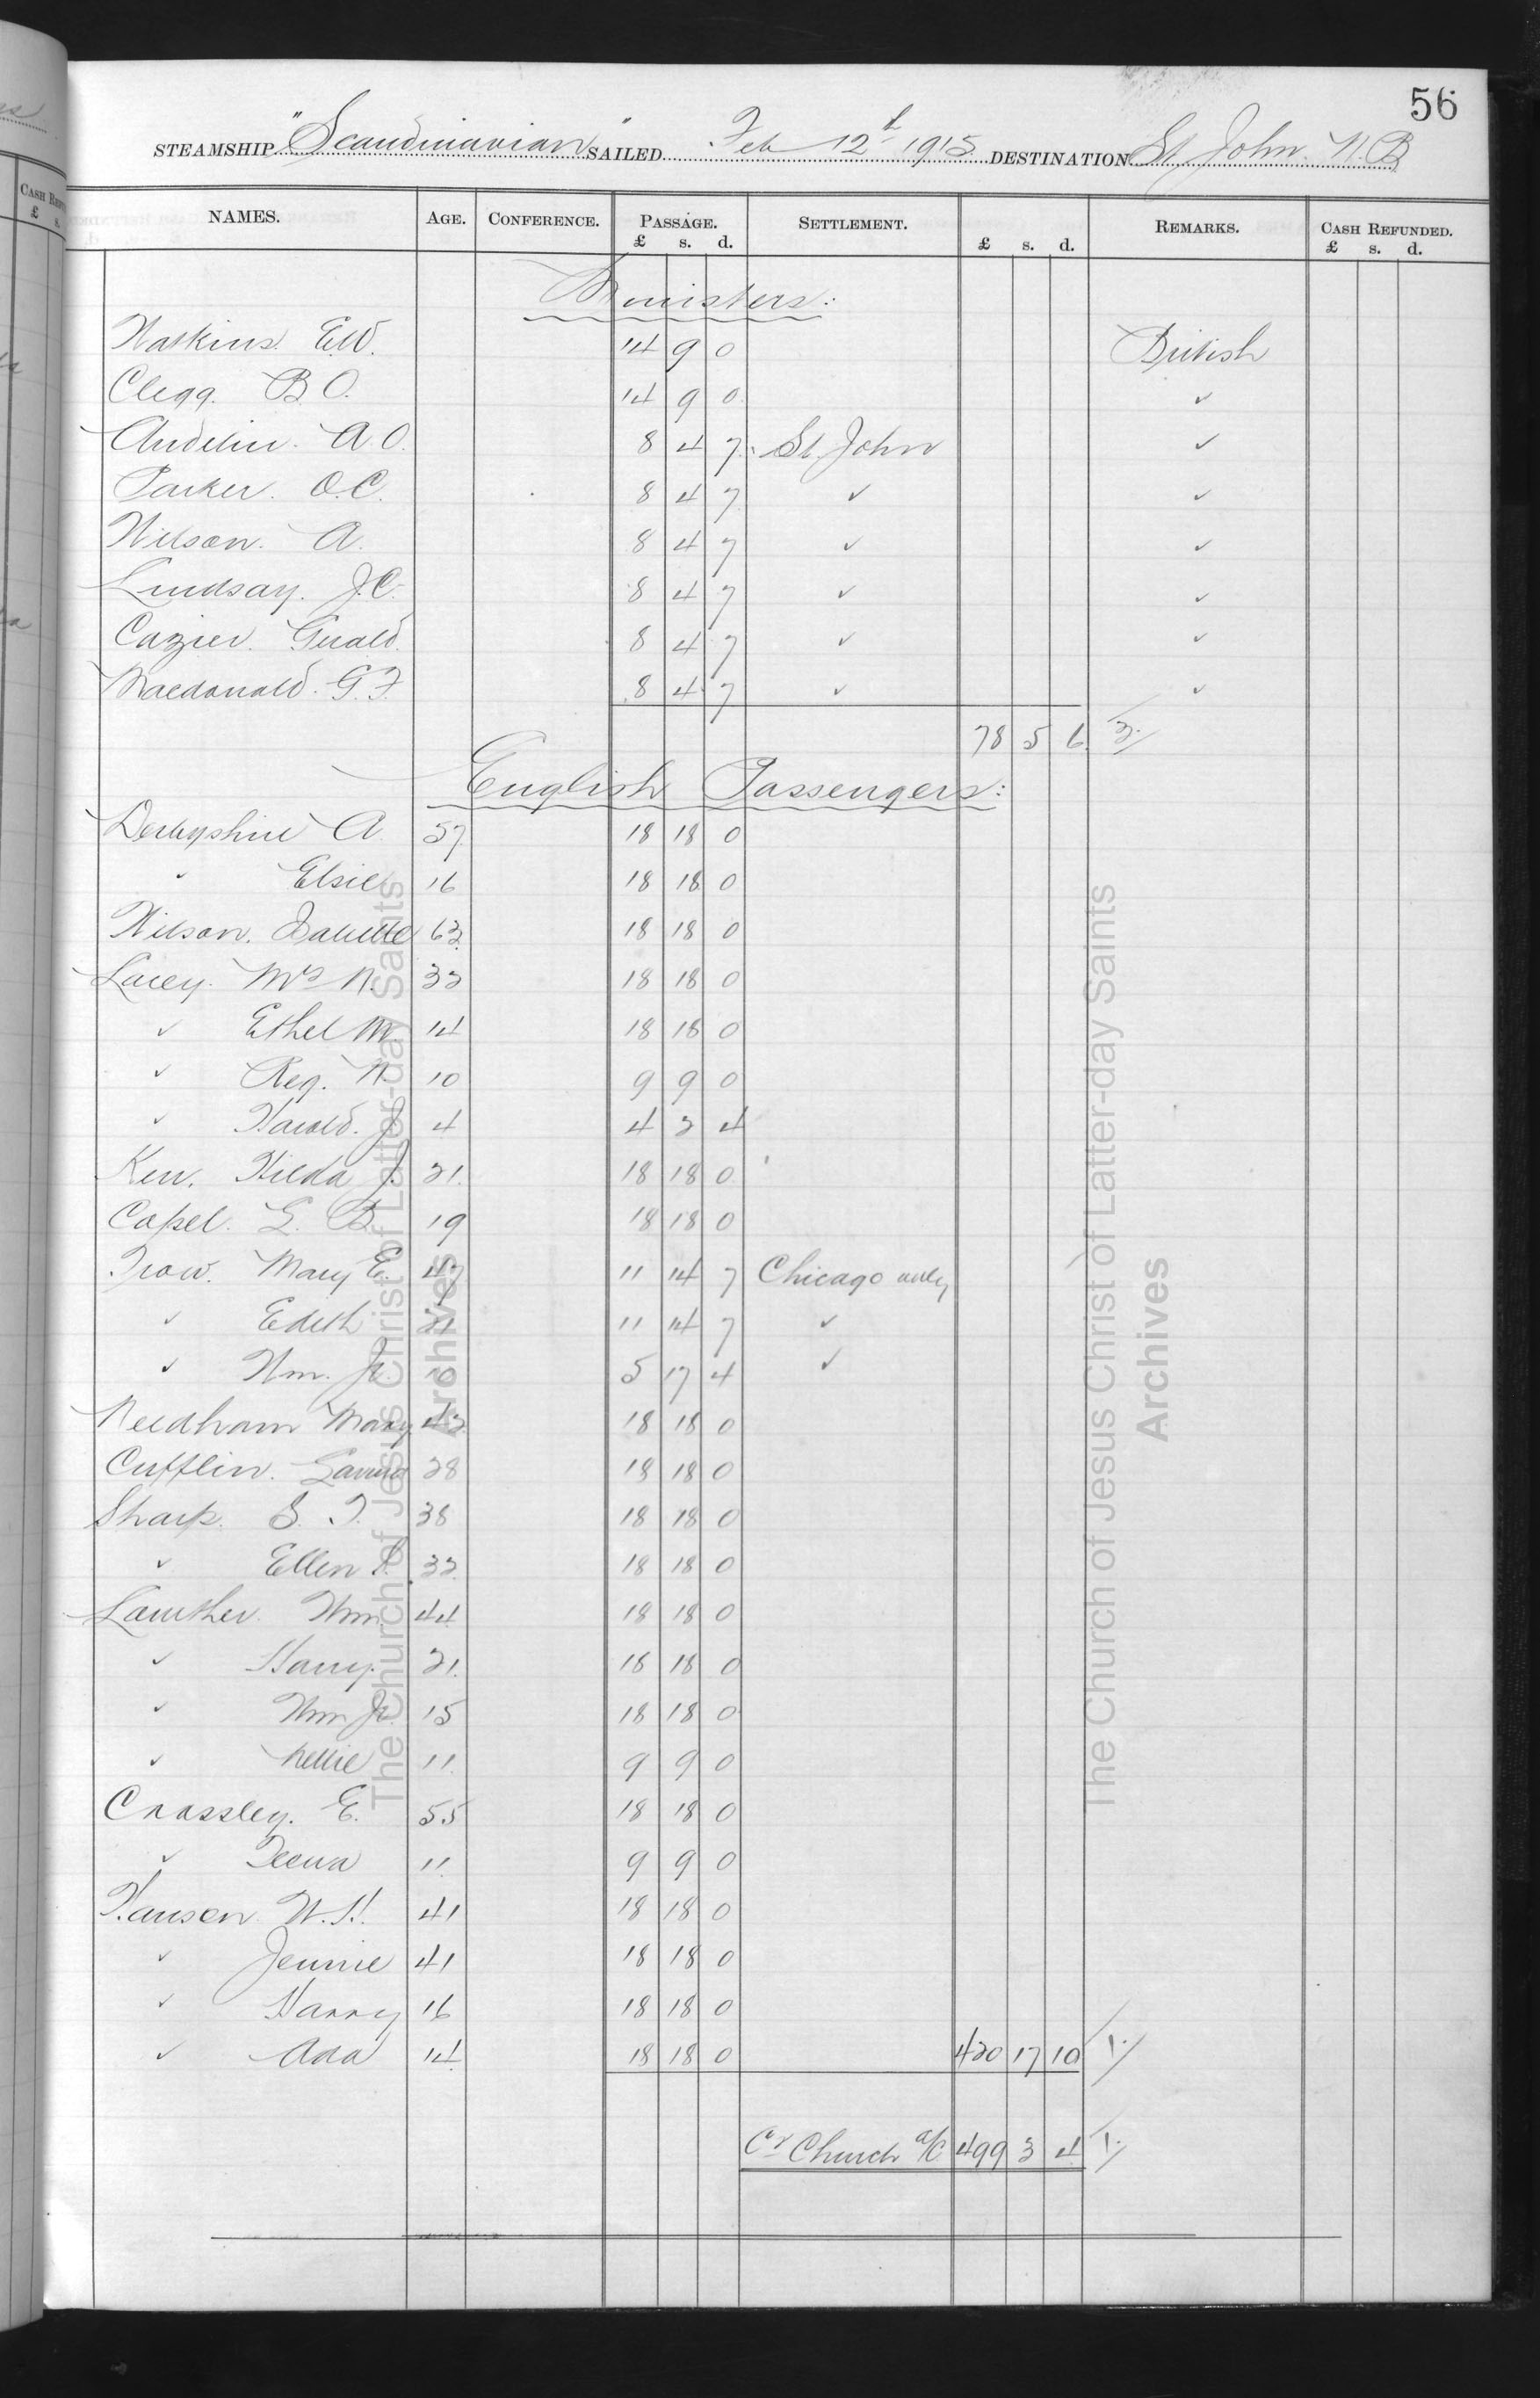 56
STEAMSHIP "Scandinavian" SAILED Feb 12th 1915 DESTINATION St John. N.B
NAMES. AGE. CONFERENCE. PASSAGE. £ s. d. SETTLEMENT. £ s. d. REMARKS. CASH REFUNDED. £ s. d.
Ministers:
Watkins. E.W. 14 9 0 British
Clegg. B.O. 14 9 0 ✓
Andelin. A.O. 8 4 7 St. John ✓
Parker. O.C. 8 4 7 ✓ ✓
Wilson. A. 8 4 7 ✓ ✓
Lindsay. J.C. 8 4 7 ✓ ✓
Cazier. Gerald. 8 4 7 ✓ ✓
Macdonald. G.F. 8 4 7 ✓ ✓
78 5 6
English Passengers:
Derbyshire A 57 18 18 0
" Elsie 16 18 18 0
Wilson. 63 18 18 0
Lacey. Mrs N. 33 18 18 0
" Ethel M. 14 18 18 0
" Reg. N. 10 9 9 0
" Harold. J. 4 4 3 4
Kew. Hilda J. 21. 18 18 0
Capel. G. B. 19 18 18 0
Trow. Mary E. 47 11 14 7 Chicago only
" Edith 21 11 14 7 ✓
" Wm. Jr. 10 5 17 4 ✓
Needham Mary 43 18 18 0
Cufflin. 28 18 18 0
Sharp. S. T. 38 18 18 0
" Ellen S. 33 18 18 0
Lowther. Wm. 44 18 18 0
" Harry. 21. 18 18 0
" Wm Jr. 15 18 18 0
" Nellie 11. 9 9 0
Crossley. E. 55 18 18 0
" 11. 9 9 0
Hanson W.H. 41 18 18 0
" Jennie 41 18 18 0
" Harry 16 18 18 0
" Ada 14 18 18 0 420 17 10 1.
Cr Church a/c 499 3 4 1.
The Church of Jesus Christ of Latter-day Saints
Archives
The Church of Jesus Christ of Latter-day Saints
Archives